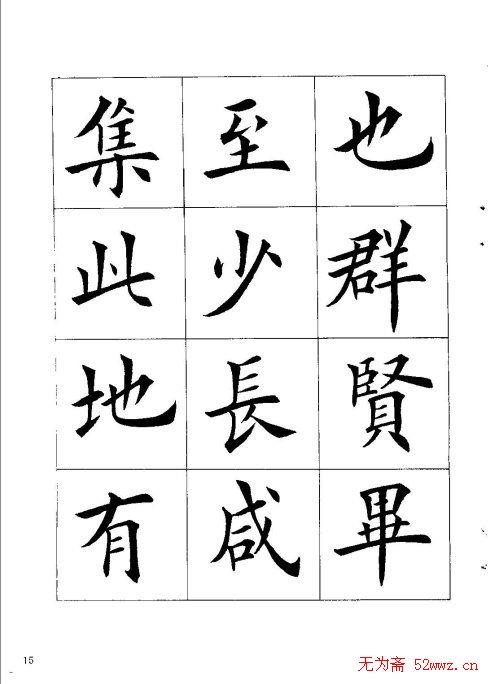 也群賢畢
至少長咸
集此地有
15
无为斋 52wwz.cn